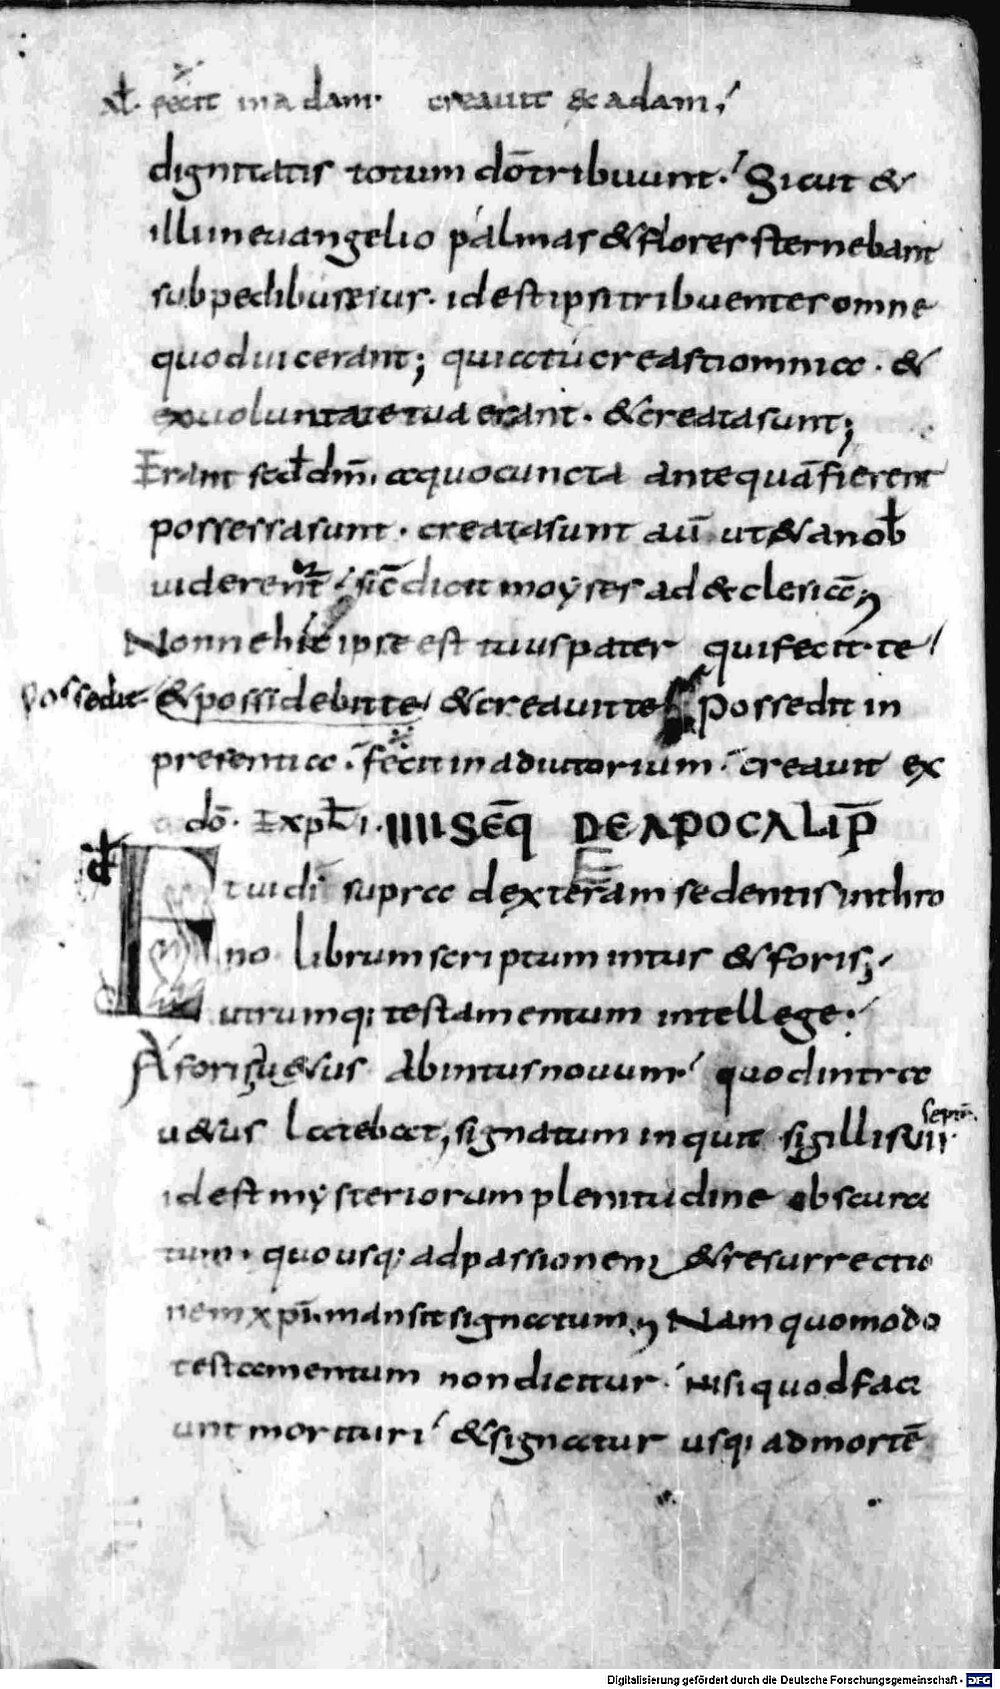 fecit in adam. creauit & adam;
dignitatis totum dō tribuunt. Sicut &
illi in euangelio palmas & flores sternebant
sub pedibus eius. id est ipsi tribuentes omne
quod uicerant; quia tu creasti omnia. &
ex uoluntate tua erant. & creata sunt;
Erant secđ dm̄. a quo cuncta ante quā fierent
possessa sunt. creata sunt aū ut & a nob
uiderent sic̄ dicit moyses ad ecclesiā
Nonne hic ipse est tuus pater qui fecit te
possedit & possidebit te & creauit te Possedit in
presentia. fecit in adiutorium. creauit ex
dō. Expł i. IIII SEQ̄ DE APOCALIP̄
Et uidi supra dexteram sedentis in thro
no librum scriptum intus & foris;
utrumq; testamentum intellege.
A foris u&us Ab intus nouum quod intra
u&us latebat, signatum inquit sigillis VII septē
id est mysteriorum plenitudine obscura
tum. quousq; ad passionem & resurrectio
nem xpī mansit signatum Nam quomodo
testamentum non dicitur nisi quod faci
unt morituri & signatur usq; ad mortē
Digitalisierung gefördert durch die Deutsche Forschungsgemeinschaft - DFG